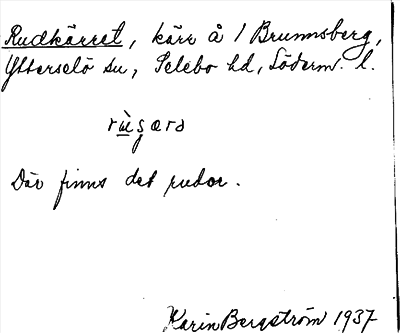 Rudkärret, kärr å 1 Brunnsberg,
Ytterselö sn, Selebo hd, Söderm. l.
Där finns det rudor.
Karin Bergström 1937